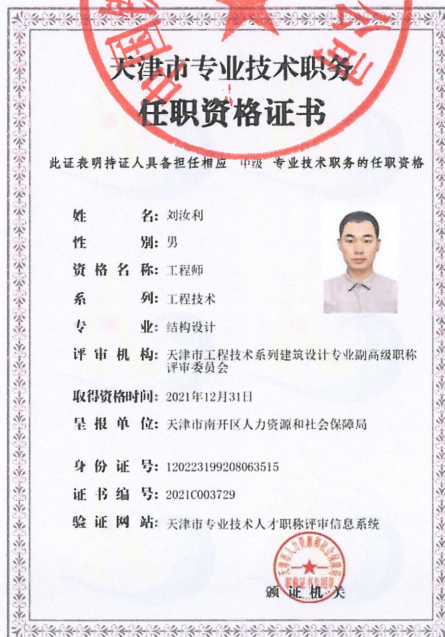 天津市专业技术职务
任职资格证书
此证表明持证人具备担任相应 中级 专业技术职务的任职资格
姓名：刘汝利
性别：男
资格名称：工程师
系列：工程技术
专业：结构设计
评审机构：天津市工程技术系列建筑设计专业副高级职称
评审委员会
取得资格时间：2021年12月31日
呈报单位：天津市南开区人力资源和社会保障局
身份证号：120223199208063515
证书编号：2021C003729
验证网站：天津市专业技术人才职称评审信息系统
颁证机关